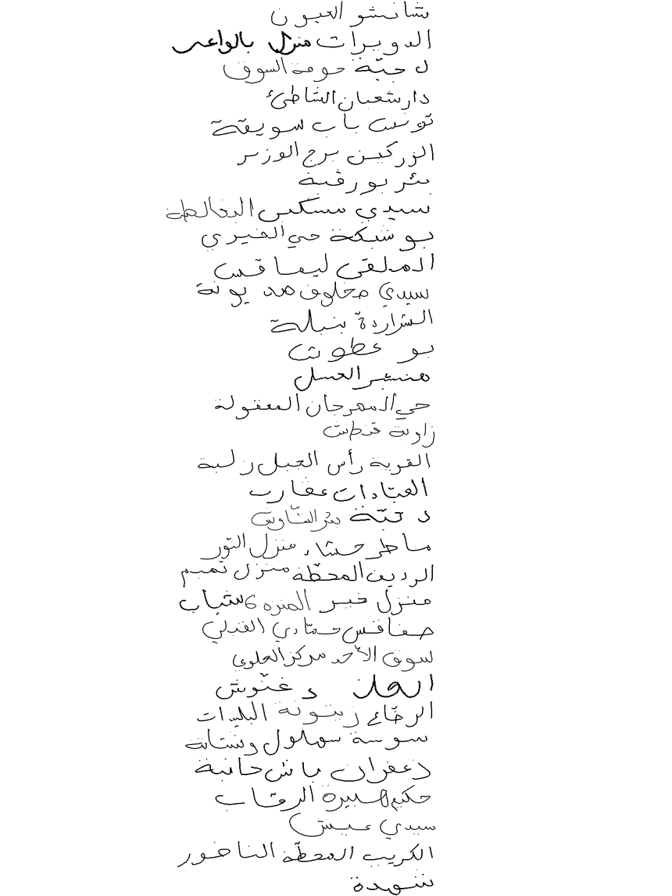 شانشو العيون
الدويرات منزل بالواعر
دجبّة حومة السوق
دار شعبان الشاطئ
تونس باب سويقة
الزركين برج الوزير
بئر بورقبة
سيدي مسكين الدخالطة
بو شبكة حي الخيري
الملقى ليماقس
سيدي مخلوف مديونة
الشراردة بنبلة
بو عطوش
هنشير العسل
حي المهرجان المعقولة
زاوية قنطش
القرية رأس الجبل زلبة
العبّادات عقارب
دجبّة بئر الشاوش
ماطر حشاد منزل النور
الرديف المحطّة منزل تميم
منزل خير المنزه 6 شباب
صفاقس حمّادي القبلي
سوق الأحد مركز العلوي
دغنوش
زيتونة البليدات
سوسة سهلول
زعفران باش حانبة
حكيم هبيرة الرقاب
سيدي عيش
الكريب المحطّة الناظور
شهدة